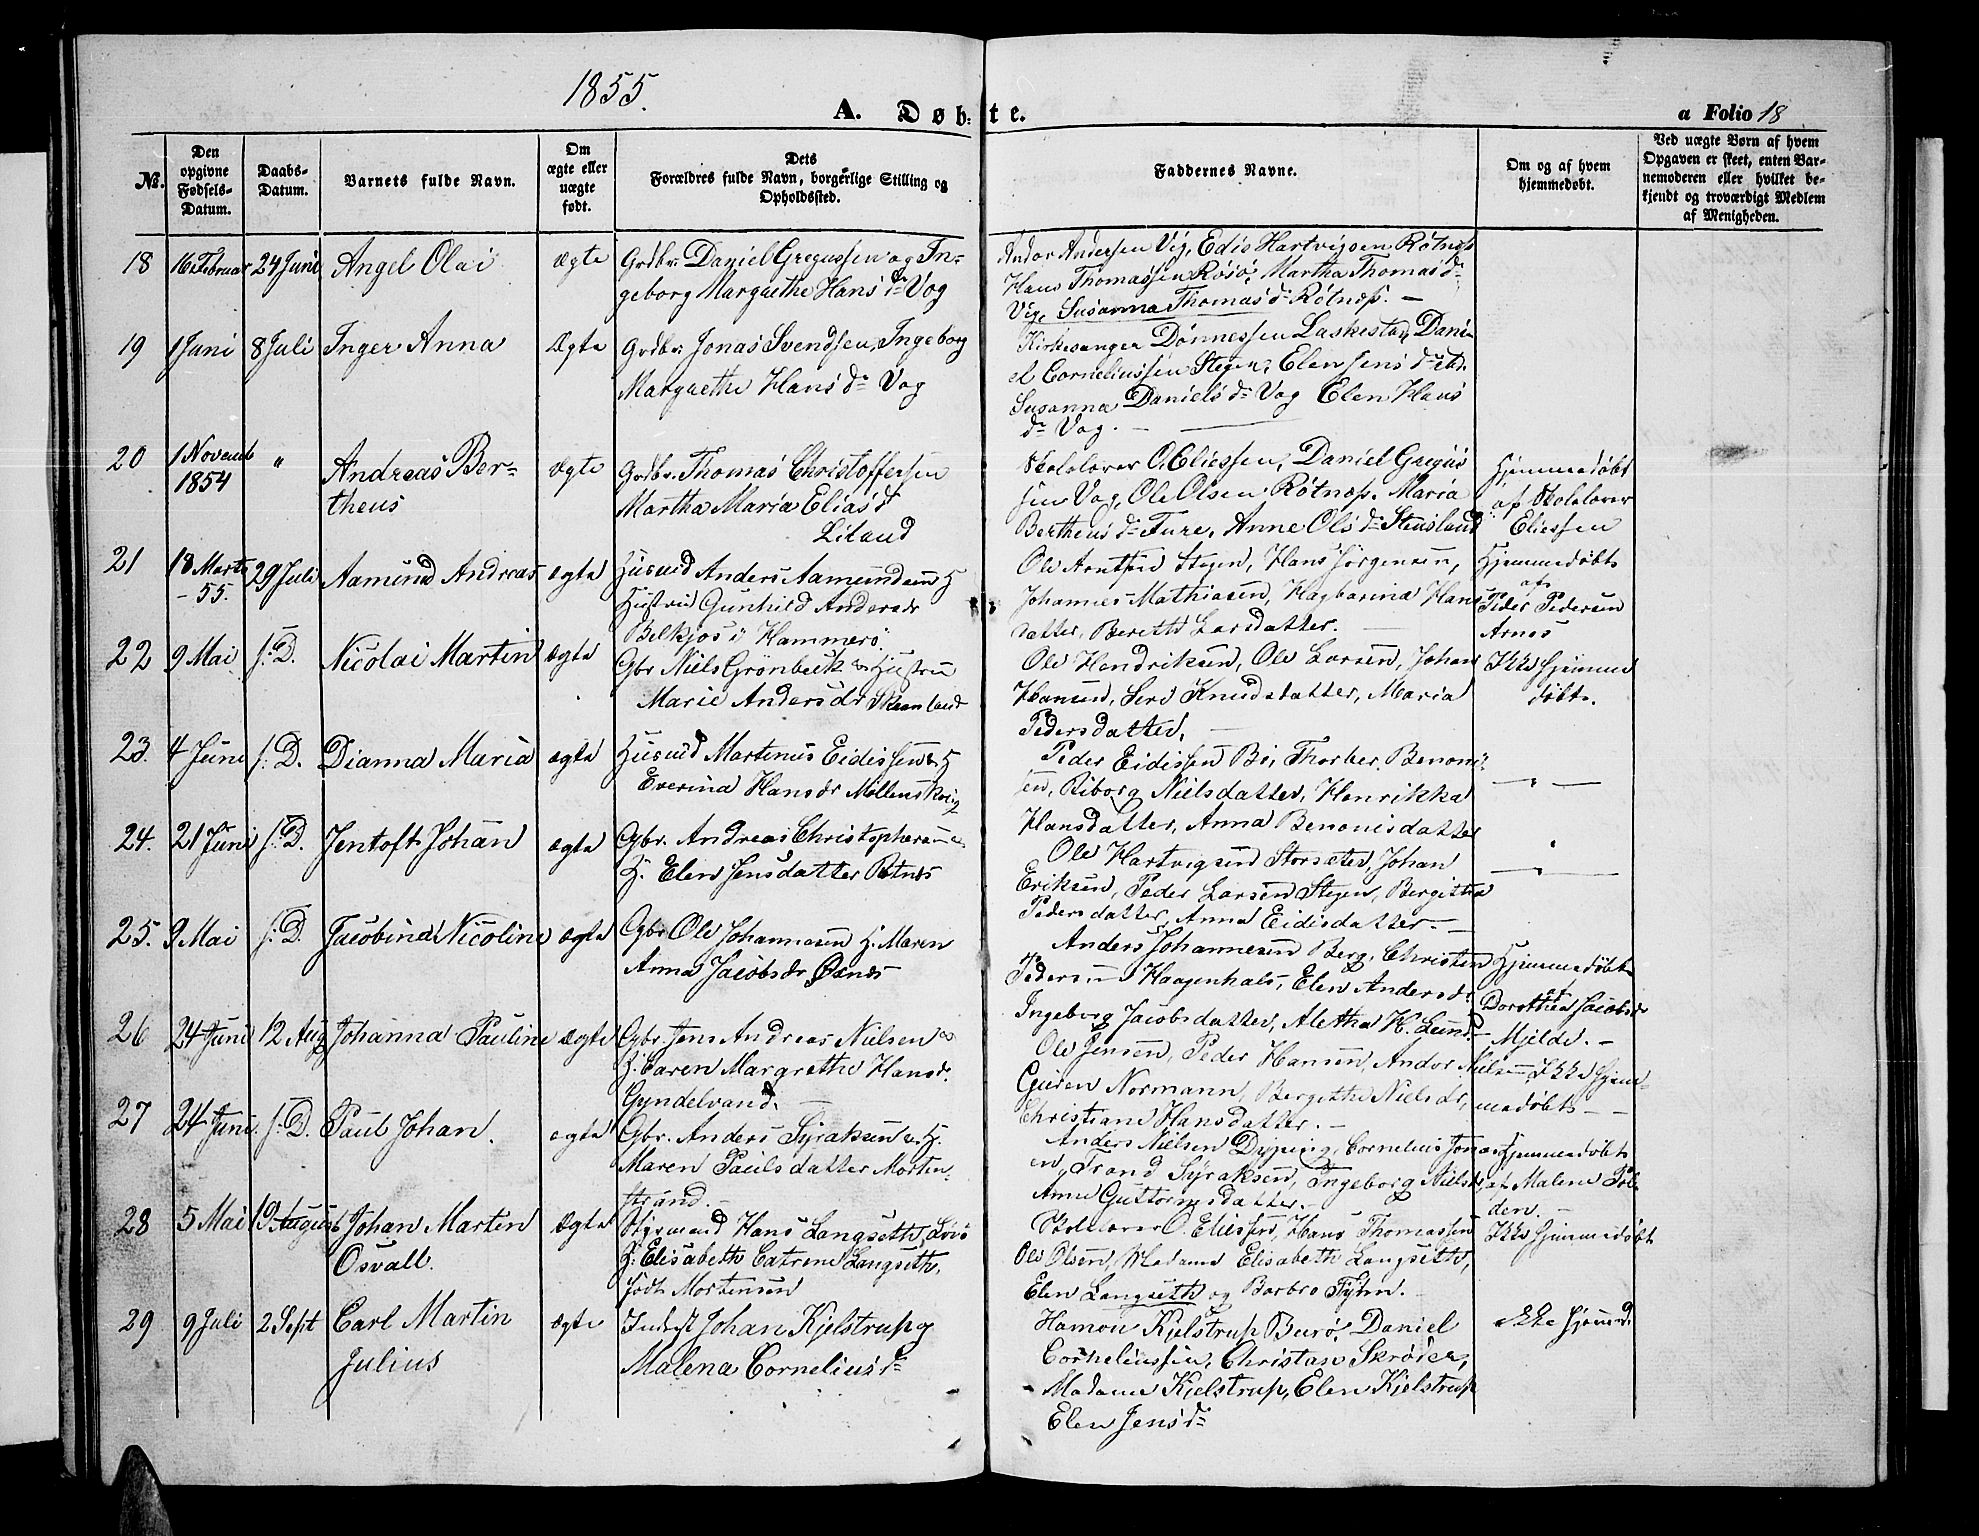 1855.
A. Døb: te.
a Folio 18
No.
Den opgivne Fødsels-Datum.
Daabs-Datum.
Barnets fulde Navn.
Om ægte eller uægte født.
Dets Forældres fulde Navn, borgerlige Stilling og Opholdssted.
Faddernes Navne.
Om og af hvem hjemmedøbt.
Ved uægte Børn af hvem Opgaven er skeet, enten Barnemoderen eller hvilket bekjendt og troværdigt Medlem af Menigheden.
18 16 Februar 24 Juni Angel Olai ægte Grdbr: Daniel Gregussen og In-
geborg Margrethe Hans dr Vog
Andor Andersen Vig, Edis Hartvigsen Røtnæs
Hans Thomassen Røsø, Martha Thomas d.
Vig, Susanna Thomas d. Røtnæs. —
19 1 Juni 8 Juli Inger Anna Ægte Grdbr: Jonas Svendsen, Ingeborg
Margrethe Hans dr Vog
Kirkesanger Dønnessen Laskestad, Dani-
el Corneliussen Stegen, Elen Jens dr
Susanna Daniels dr Vog Elen Hans
dr Vog. —
20 1 Novemb 1854 " Andreas Ber-
theus ægte Grdbr. Thomas Christoffersen
Martha Maria Elias d
Liland
Skolelærer O. Eliessen, Daniel Gregus
sen Vog, Ole Olsen Røtnæs. Maria
Bertheus d. Fure, Anne Ols d. Stensland
Hjemmedøbt
af Skolelærer
Eliessen
21 18 Marts - 55. 29 Juli Aamund Andreas ægte Husmd Anders Aamundsen &
Hustru Gunhild Andersdr
Belkjos i Hammerø.
Ole Arntsen Stegen, Hans Jørgensen,
Johannes Mathiasen, Hagbarina Hans
datter, Bereth Larsdatter.
Hjemmedøbt
af
Peder Pedersen
Arnes
22 9 Mai s: D. Nicolai Martin ægte Gbr Niels Grønbeck & Hustru
Marie Andersdr Skaanland
Ole Hendriksen, Ole Larsen, Johan
Hansen, Sere Knudsdatter, Maria
Pedersdatter.
Ikke hjemme
døbt.
23. 4 Juni s: D. Dianna Maria ægte Husmd Martinus Eidissen & H
Everina Hansdr Møllenskvig
Peder Eidissen Bø, Thorber. Benoni-
sen, Riborg Nielsdatter, Henrikka
Hansdatter, Anna Benonisdatter
— " —
24. 21 Juni s: D. Jentoft Johan ægte Gbr. Andreas Christophersen &
H. Elen Jensdatter Røtnes
Ole Hartvigsen Storsæter, Johan
Eriksen, Peder Larsen Stegen, Bergitha
Pedersdatter, Anna Eidisdatter. —
— " —
25. 9 Mai s: D. Jacobina Nicoline ægte Gbr Ole Johannesen H. Maren
Anna Jacobsdr
Anders Johannesen Berg, Christen
Pedersen Haagenhals, Elen Andersdr.
Ingeborg Jacobsdatter, Aletha H. Lund. —
Hjemmedøbt
af
Dorothea Jacobsdr
Mjelde. —
26 24 Juni 12 Aug Johanna Pauline ægte Gbr. Jens Andreas Nielsen &
H. Caren Margrethe Hansdr.
Gyndelvand. —
Ole Jensen, Peder Hansen, Andor Nielsen,
Gjeren Normann, Bergithe Nielsdr,
Christiane Hansdatter. —
Ikke hjem-
medøbt —
27 24 Juni s: D. Paul Johan. ægte Gbr. Anders Syraksen & H.
Maren Paulsdatter Morten-
strand.
Anders Nielsen Dyping, Cornelius Jonas
en, Trond Syraksen, Ingeborg Nielsdr,
Anne Guttormsdatter. —
Hjemmedøbt
af Malene Pol-
den. —
28 5 Mai 19 August Johan Martin
Osvall. Ægte Huusmand Hans Langseth, Løvø
H. Elisabeth Catrine Langseth,
født Mortensen
Skolelærer O. Eliessen, Hans Thomassen
Ole Olsen, Madame Elisabeth Langseth,
Elen Langseth og Barbro Fyhn.
Ikke hjemmedøbt
29 9 Juli 2 Sept Carl Martin
Julius ægte Inderst Johan Kjelstrup og
Malena Cornelius dr
Hamon Kjelstrup Burø, Daniel
Corneliussen, Christian Skrøder,
Madame Kjelstrup, Elen Kjelstrup
Elen Jens dr
ikke hjemmed.